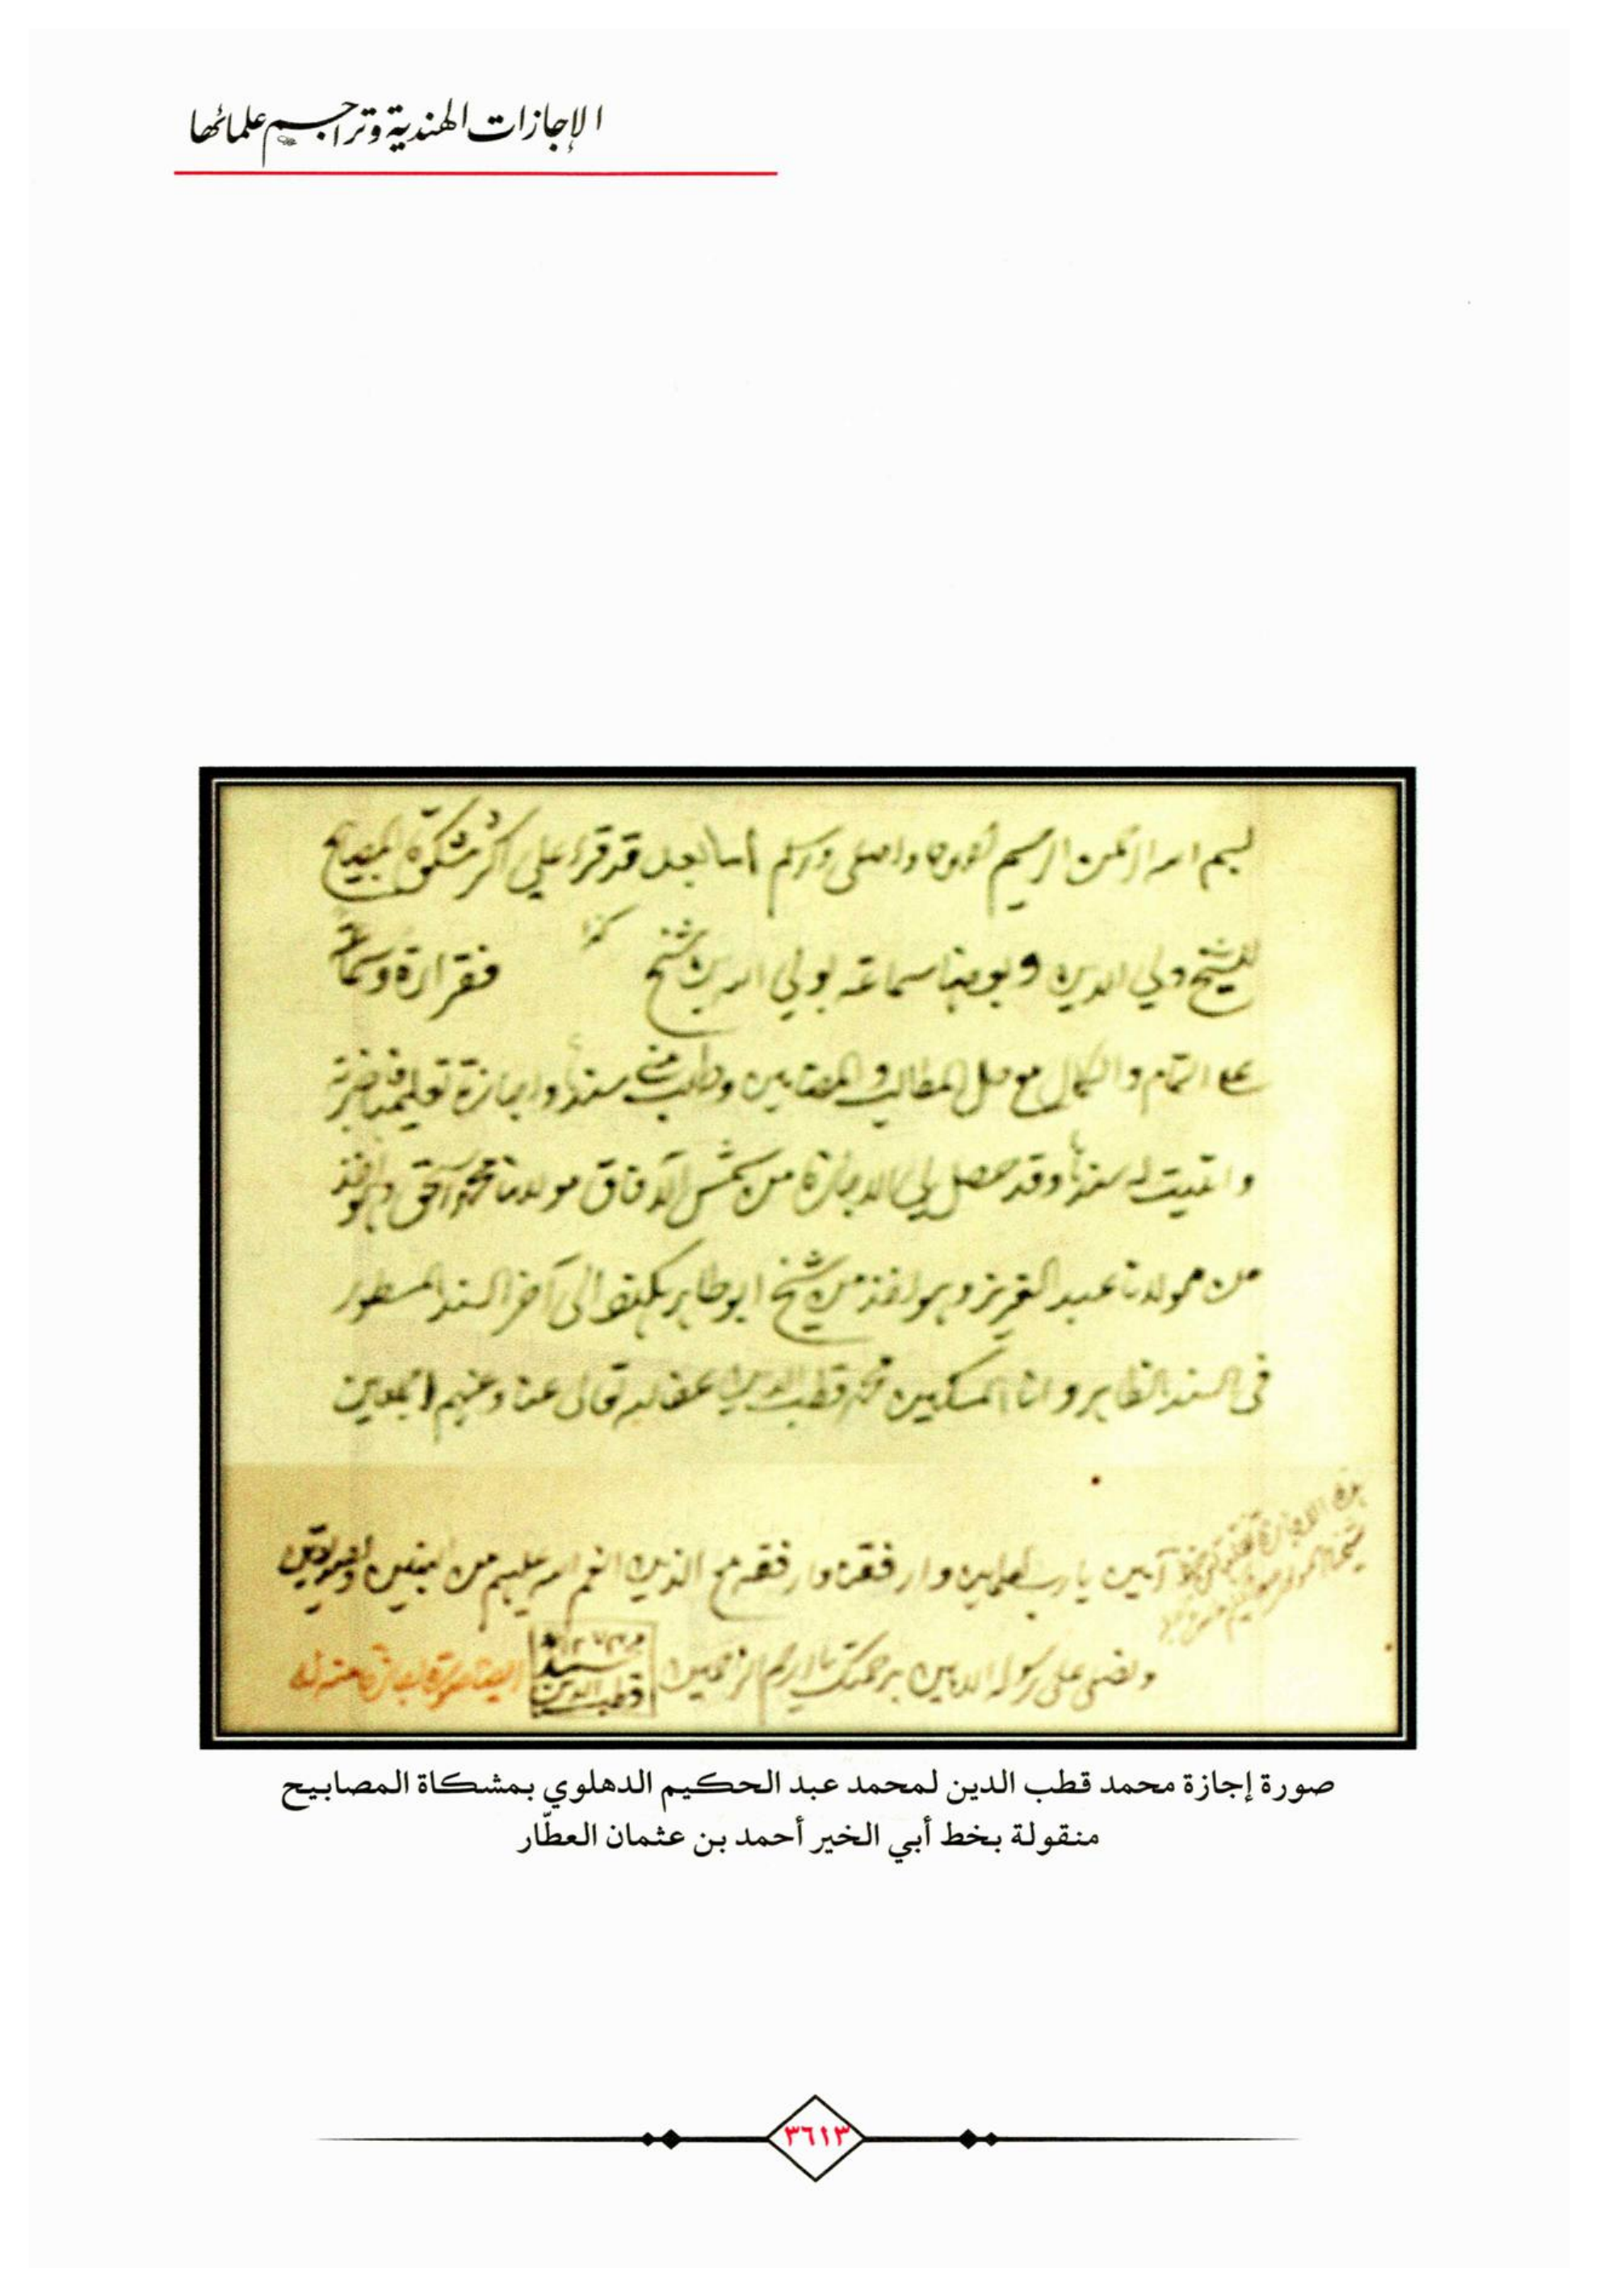 الإجازات الهندية وتراجم علمائها
بسم الله الرحمن الرحيم واصلي واسلم اما بعد قد قرء علي اكثر مشكوة المصابيح
للشيخ ولي الدين وبعضها سماعة لولي الدين شيخ كذا فقراءة وسماعة
على التمام والكمال مع حل المطالب والمضامين وطلب مني سندا واجازة تعليمها فاجزته
واثبت له سندا وقد حصل لي الاجازة من شمس الآفاق مولانا محمد اسحق وهو اخذ
من مولانا عبد العزيز وهو اخذ من شيخ ابو طاهر هكذا الى آخر السند المسطور
في السند الظاهر وانا المسكين محمد قطب الدين عفا الله تعالى عنا وعنهم اجمعين
آمين يا رب العلمين وارفقه مع الذين انعم الله عليهم من النبيين والصديقين
ونصلي على رسوله الامين برحمتك يا ارحم الراحمين
محمد
قطب الدين
صورة إجازة محمد قطب الدين لمحمد عبد الحكيم الدهلوي بمشكاة المصابيح
منقولة بخط أبي الخير أحمد بن عثمان العطّار
٣٦١٣